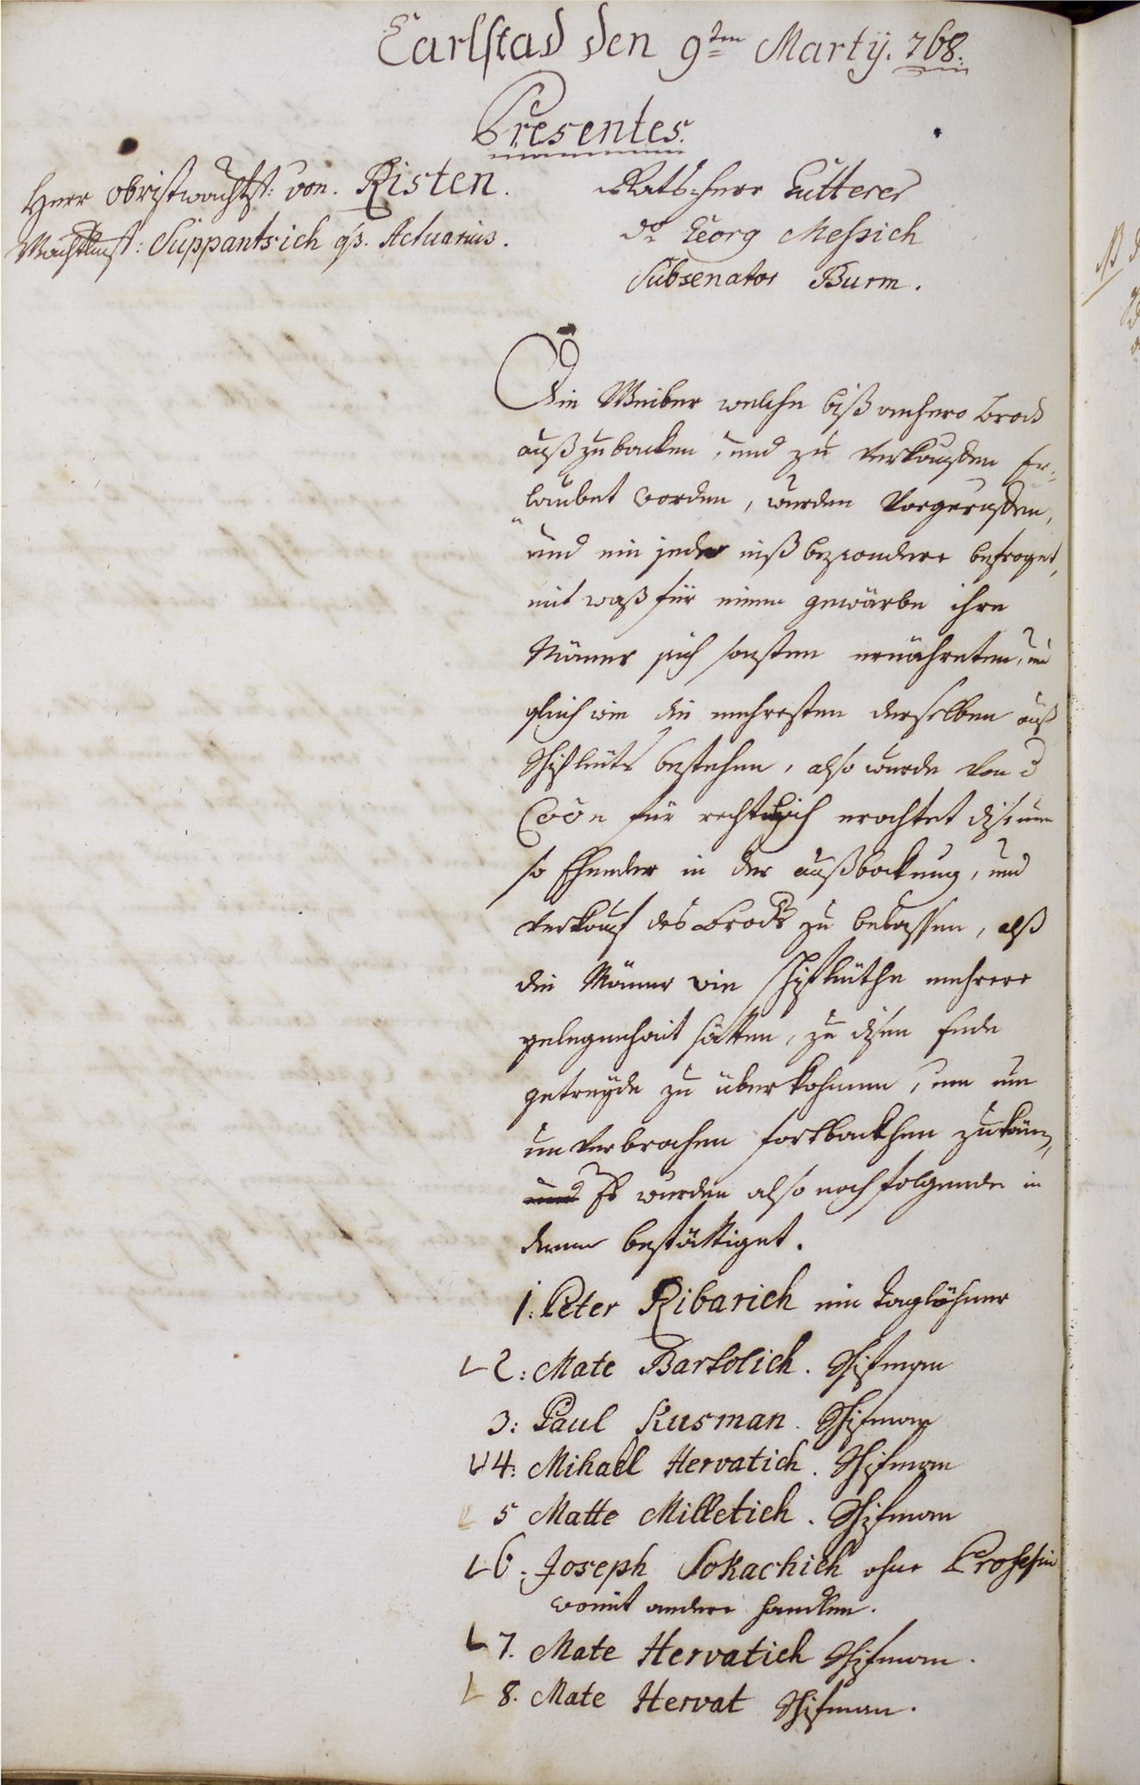 Carlstad den 9ten Martÿ. 768.
Presentes.
Herr obristwachtst: von. Risten.
Süppantsich qs. Actuarius.
Rats-Herr Gutterer
do Georg Messich
Subsenator Burm.
Die Weiber welche biß anhero Brod
außzubacken, und zu verkauffen er-
laubet worden, wurden vorgeruffen,
und ein jeder inßbezondere befraget,
mit waß für einem gewärbe ihre
Männer sich sonsten ernähreten, und
gleich wie die mehresten derselben auß
Schifleüts bestehen, also wurde von d
Coön für rechtlich erachtet disinen
so Ehender in der außbackung, und
verkauf des Brods zu belassen, alß
die Männer wie Schifleüthe mehrere
gelegenheit hätten, zu disem Ende
getreyde zu überkohmmen, um
unverbrochen fortbackhen zu könn,
und Es wurden also nachfolgende in
denen bestättiget.
1: Peter Ribarich ein Taglöhner
2: Mate Bartolich. Schifman
3: Paul Kusman. Schifman
4: Mihael Hervatich. Schifman
5 Matte Milletich. Schifman
6. Joseph Sokachich ohne Profession
womit andere handlen.
7. Mate Hervatich Schifman.
8. Mate Hervat Schifman.